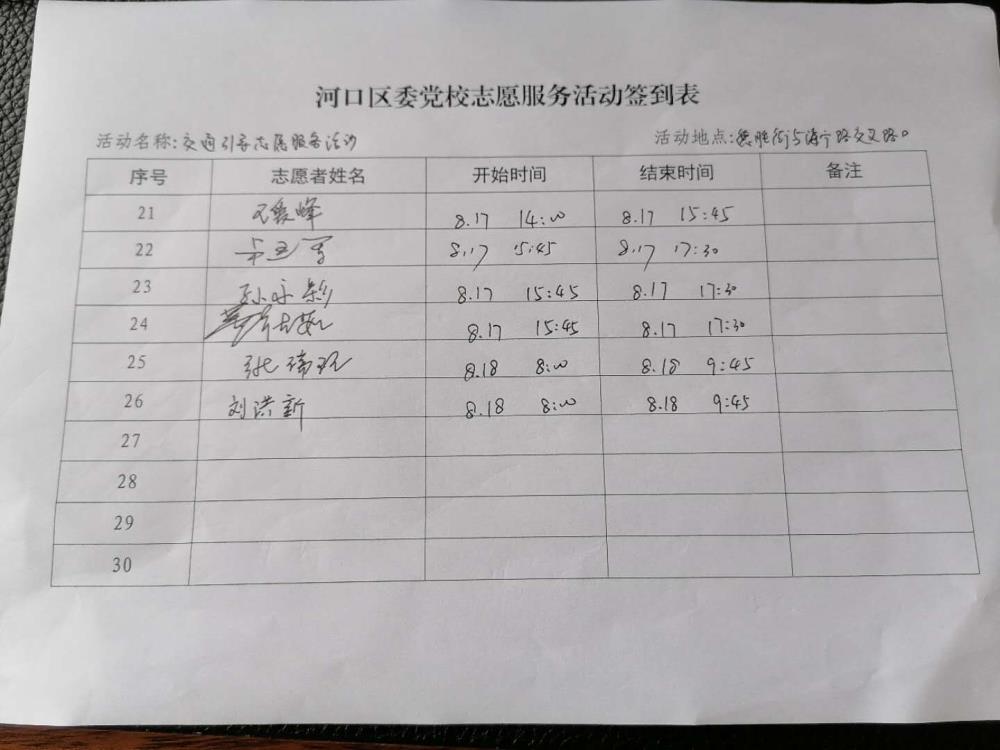 河口区委党校志愿服务活动签到表
活动名称:交通引导志愿服务活动 活动地点:德胜街与海宁路交叉路口
序号 志愿者姓名 开始时间 结束时间 备注
21 8.17 14:00 8.17 15:45
22 8.17 15:45 8.17 17:30
23 孙永彩 8.17 15:45 8.17 17:30
24 8.17 15:45 8.17 17:30
25 张 8.18 8:00 8.18 9:45
26 刘洪新 8.18 8:00 8.18 9:45
27
28
29
30